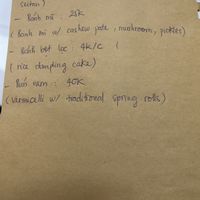 (seitan)
- Bánh mì : 25K
(Bánh mì w/ cashew pate, mushroom, pickles)
- Bánh bột lọc : 4K/C (
(rice dumpling cake)
- Bún nem : 40K
(vermicelli w/ traditional spring rolls)